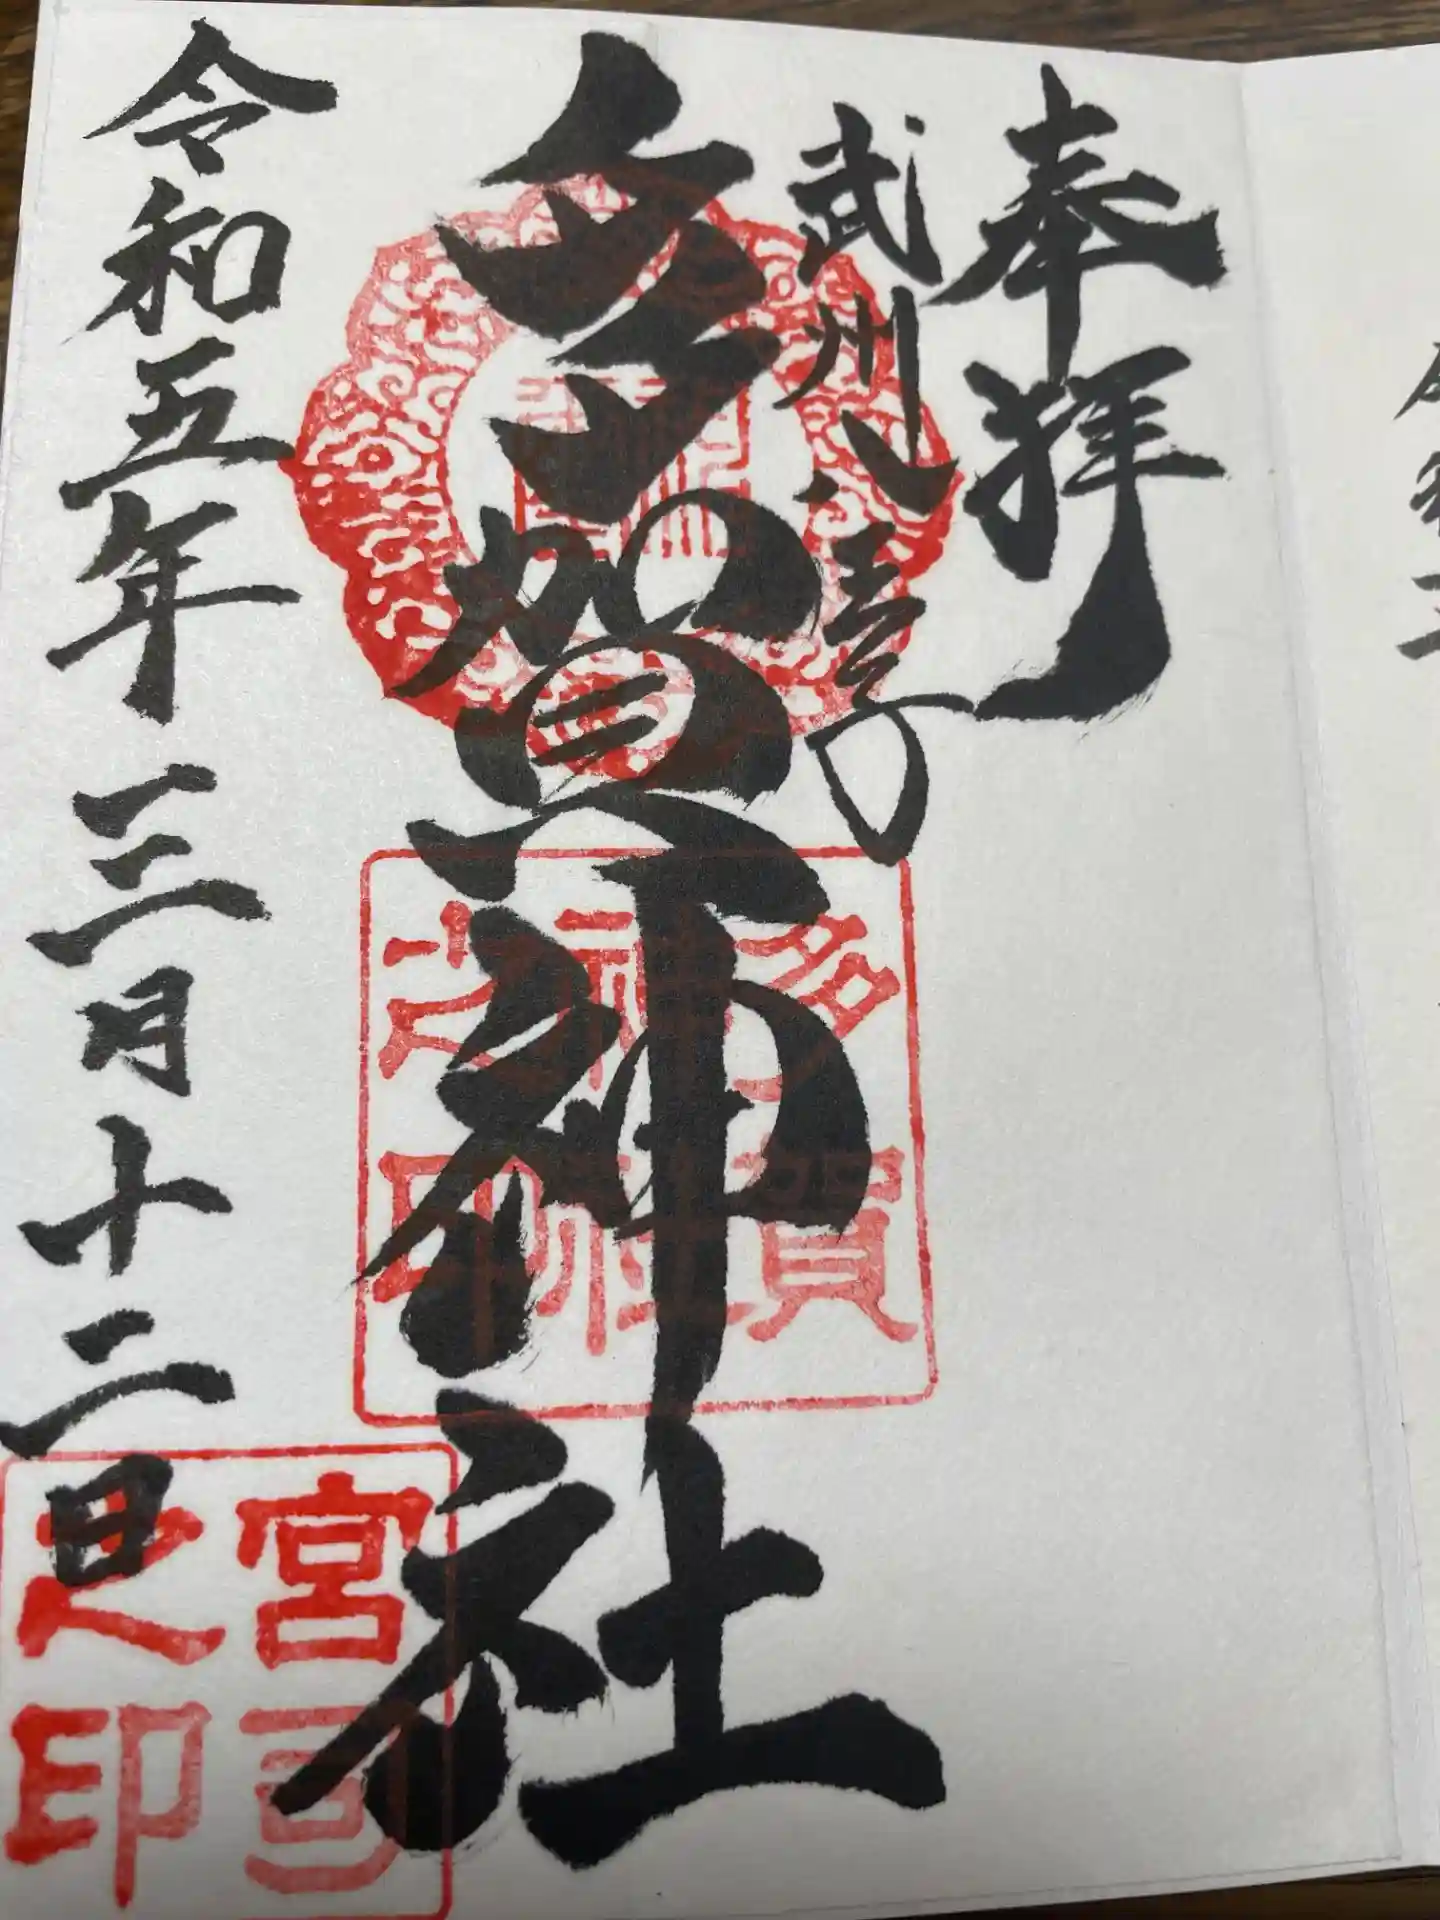 奉拝
武州八王子
多賀神社
多賀
神社
之印
令和五年三月十二日
宮司
之印